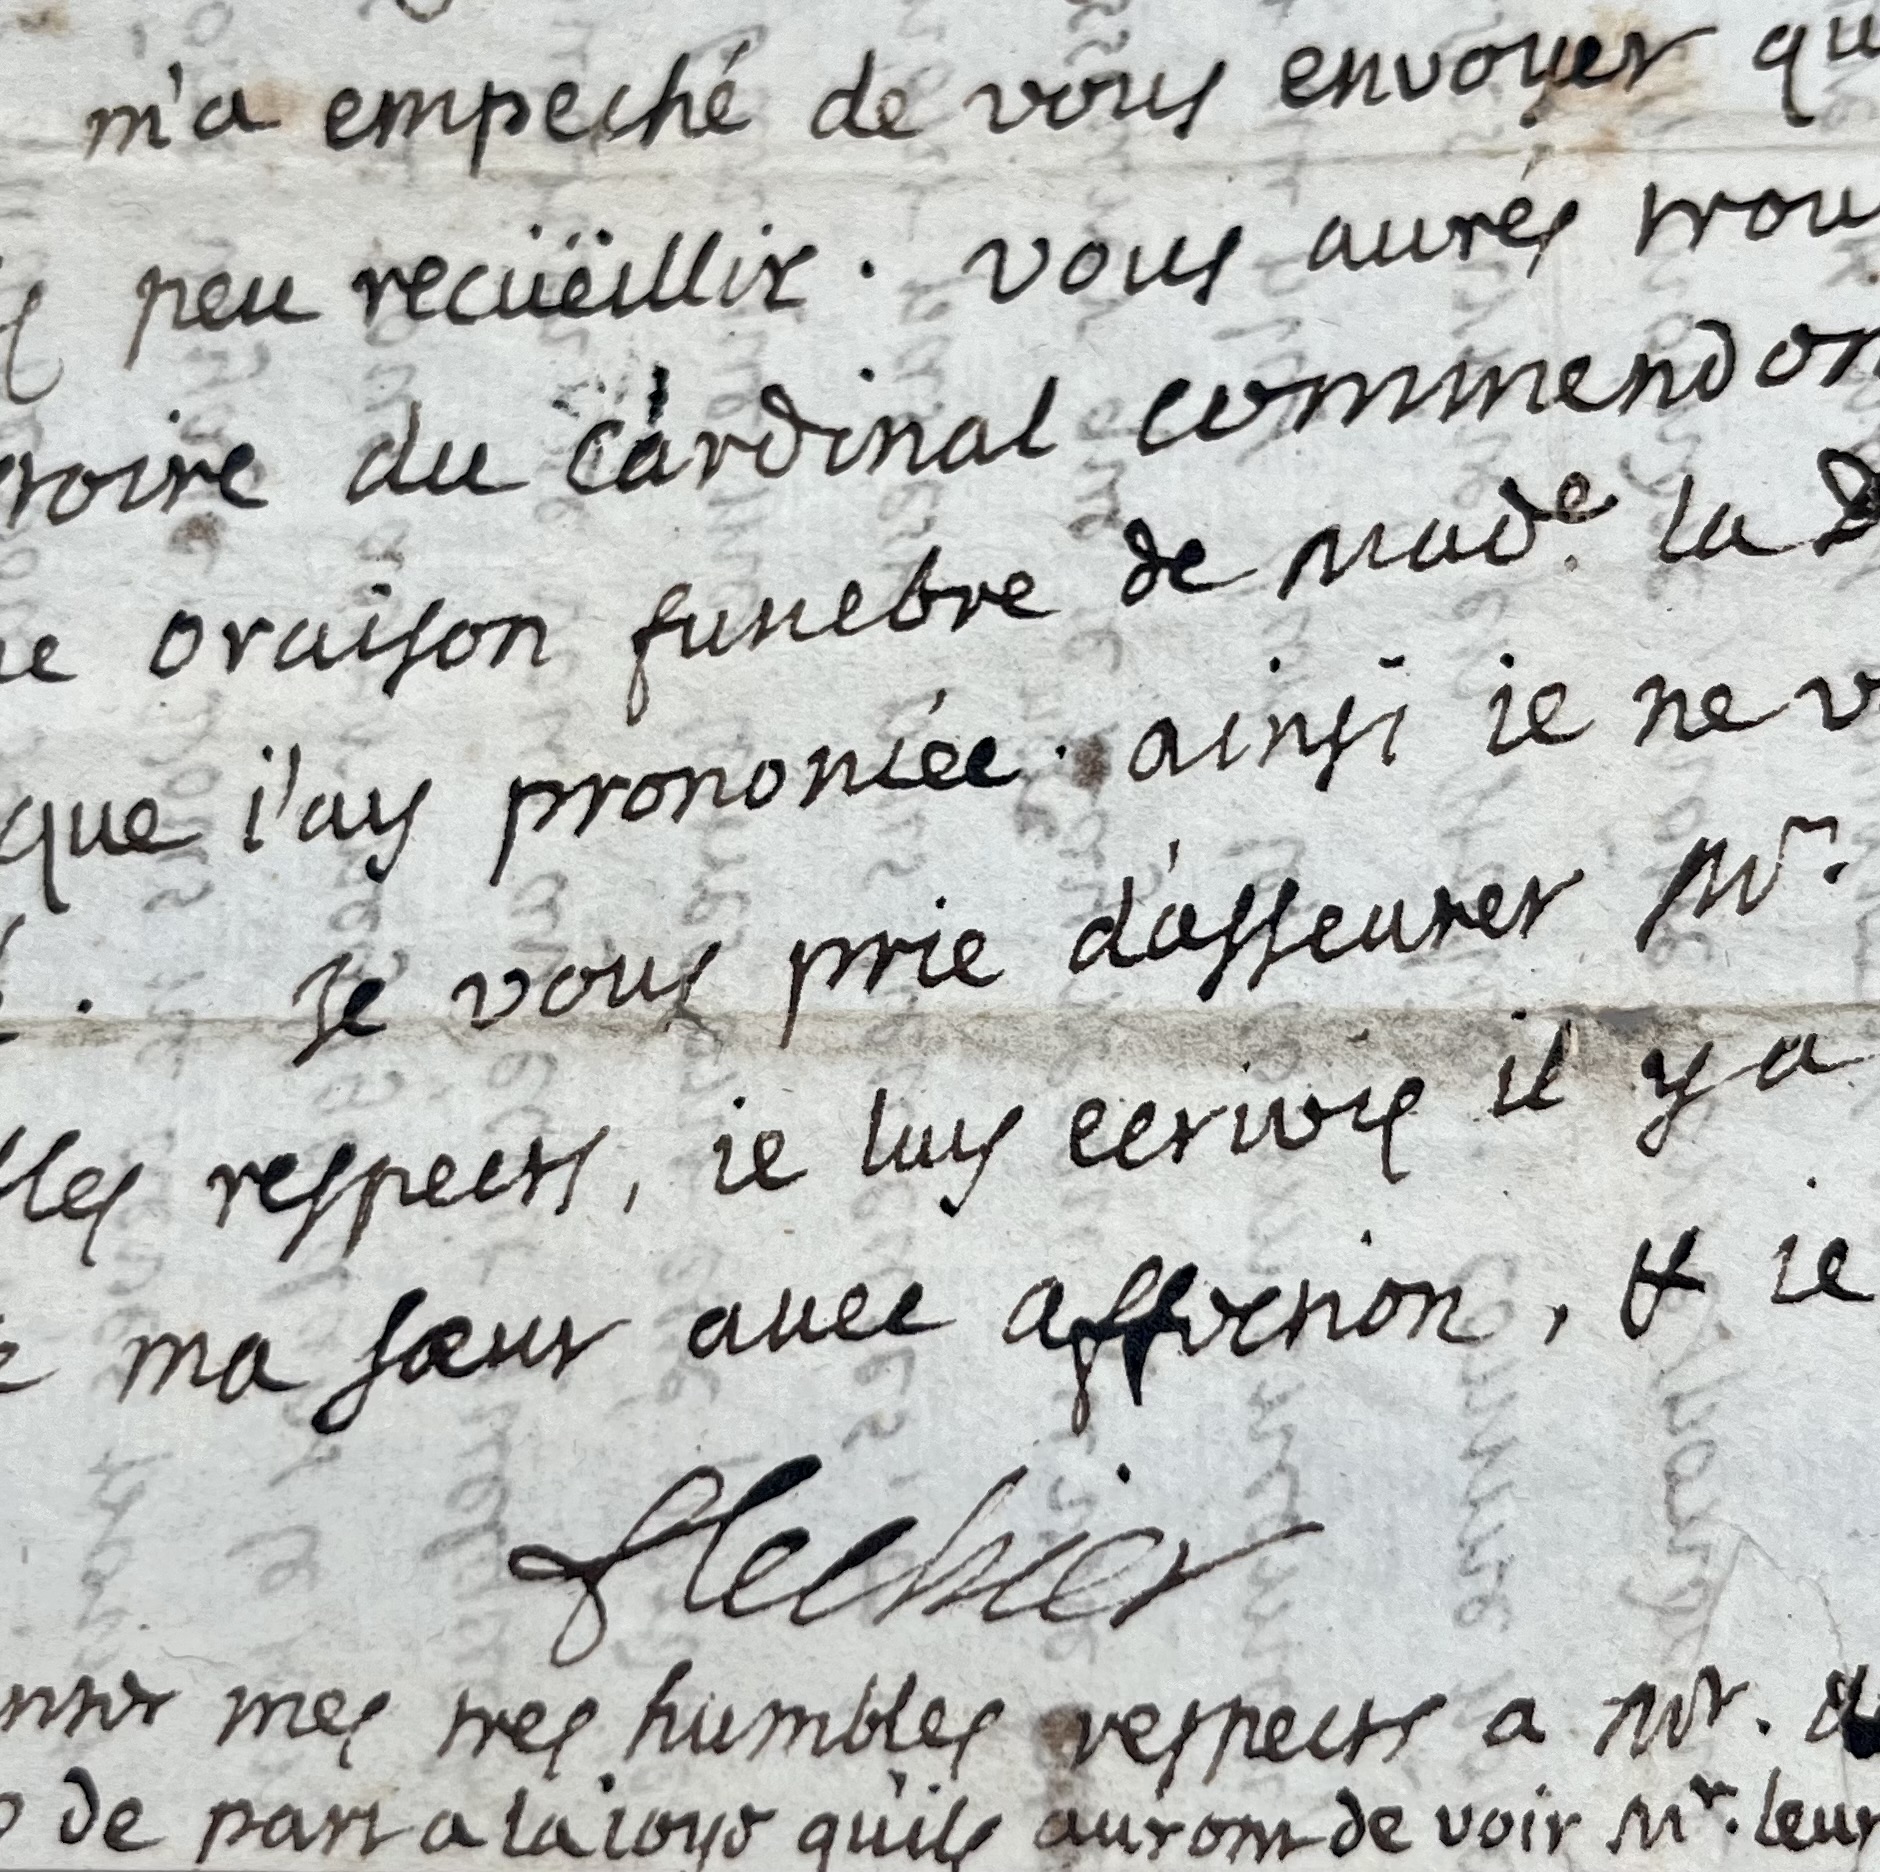 m'a empeché de vous envoyer qu
peu recüëillir. vous aurés trou
toire du cardinal commendon
ne oraison funebre de mad.e la D
que i'ay prononcée. ainsi ie ne v
. Je vous prie d'asseurer Mr.
bles respects, ie luy ecrivis il y a
ma sœur auec affection, & ie
flechier
mes tres humbles respects a Mr. d
de part a la ioye qu'ils auront de voir Mr. leur